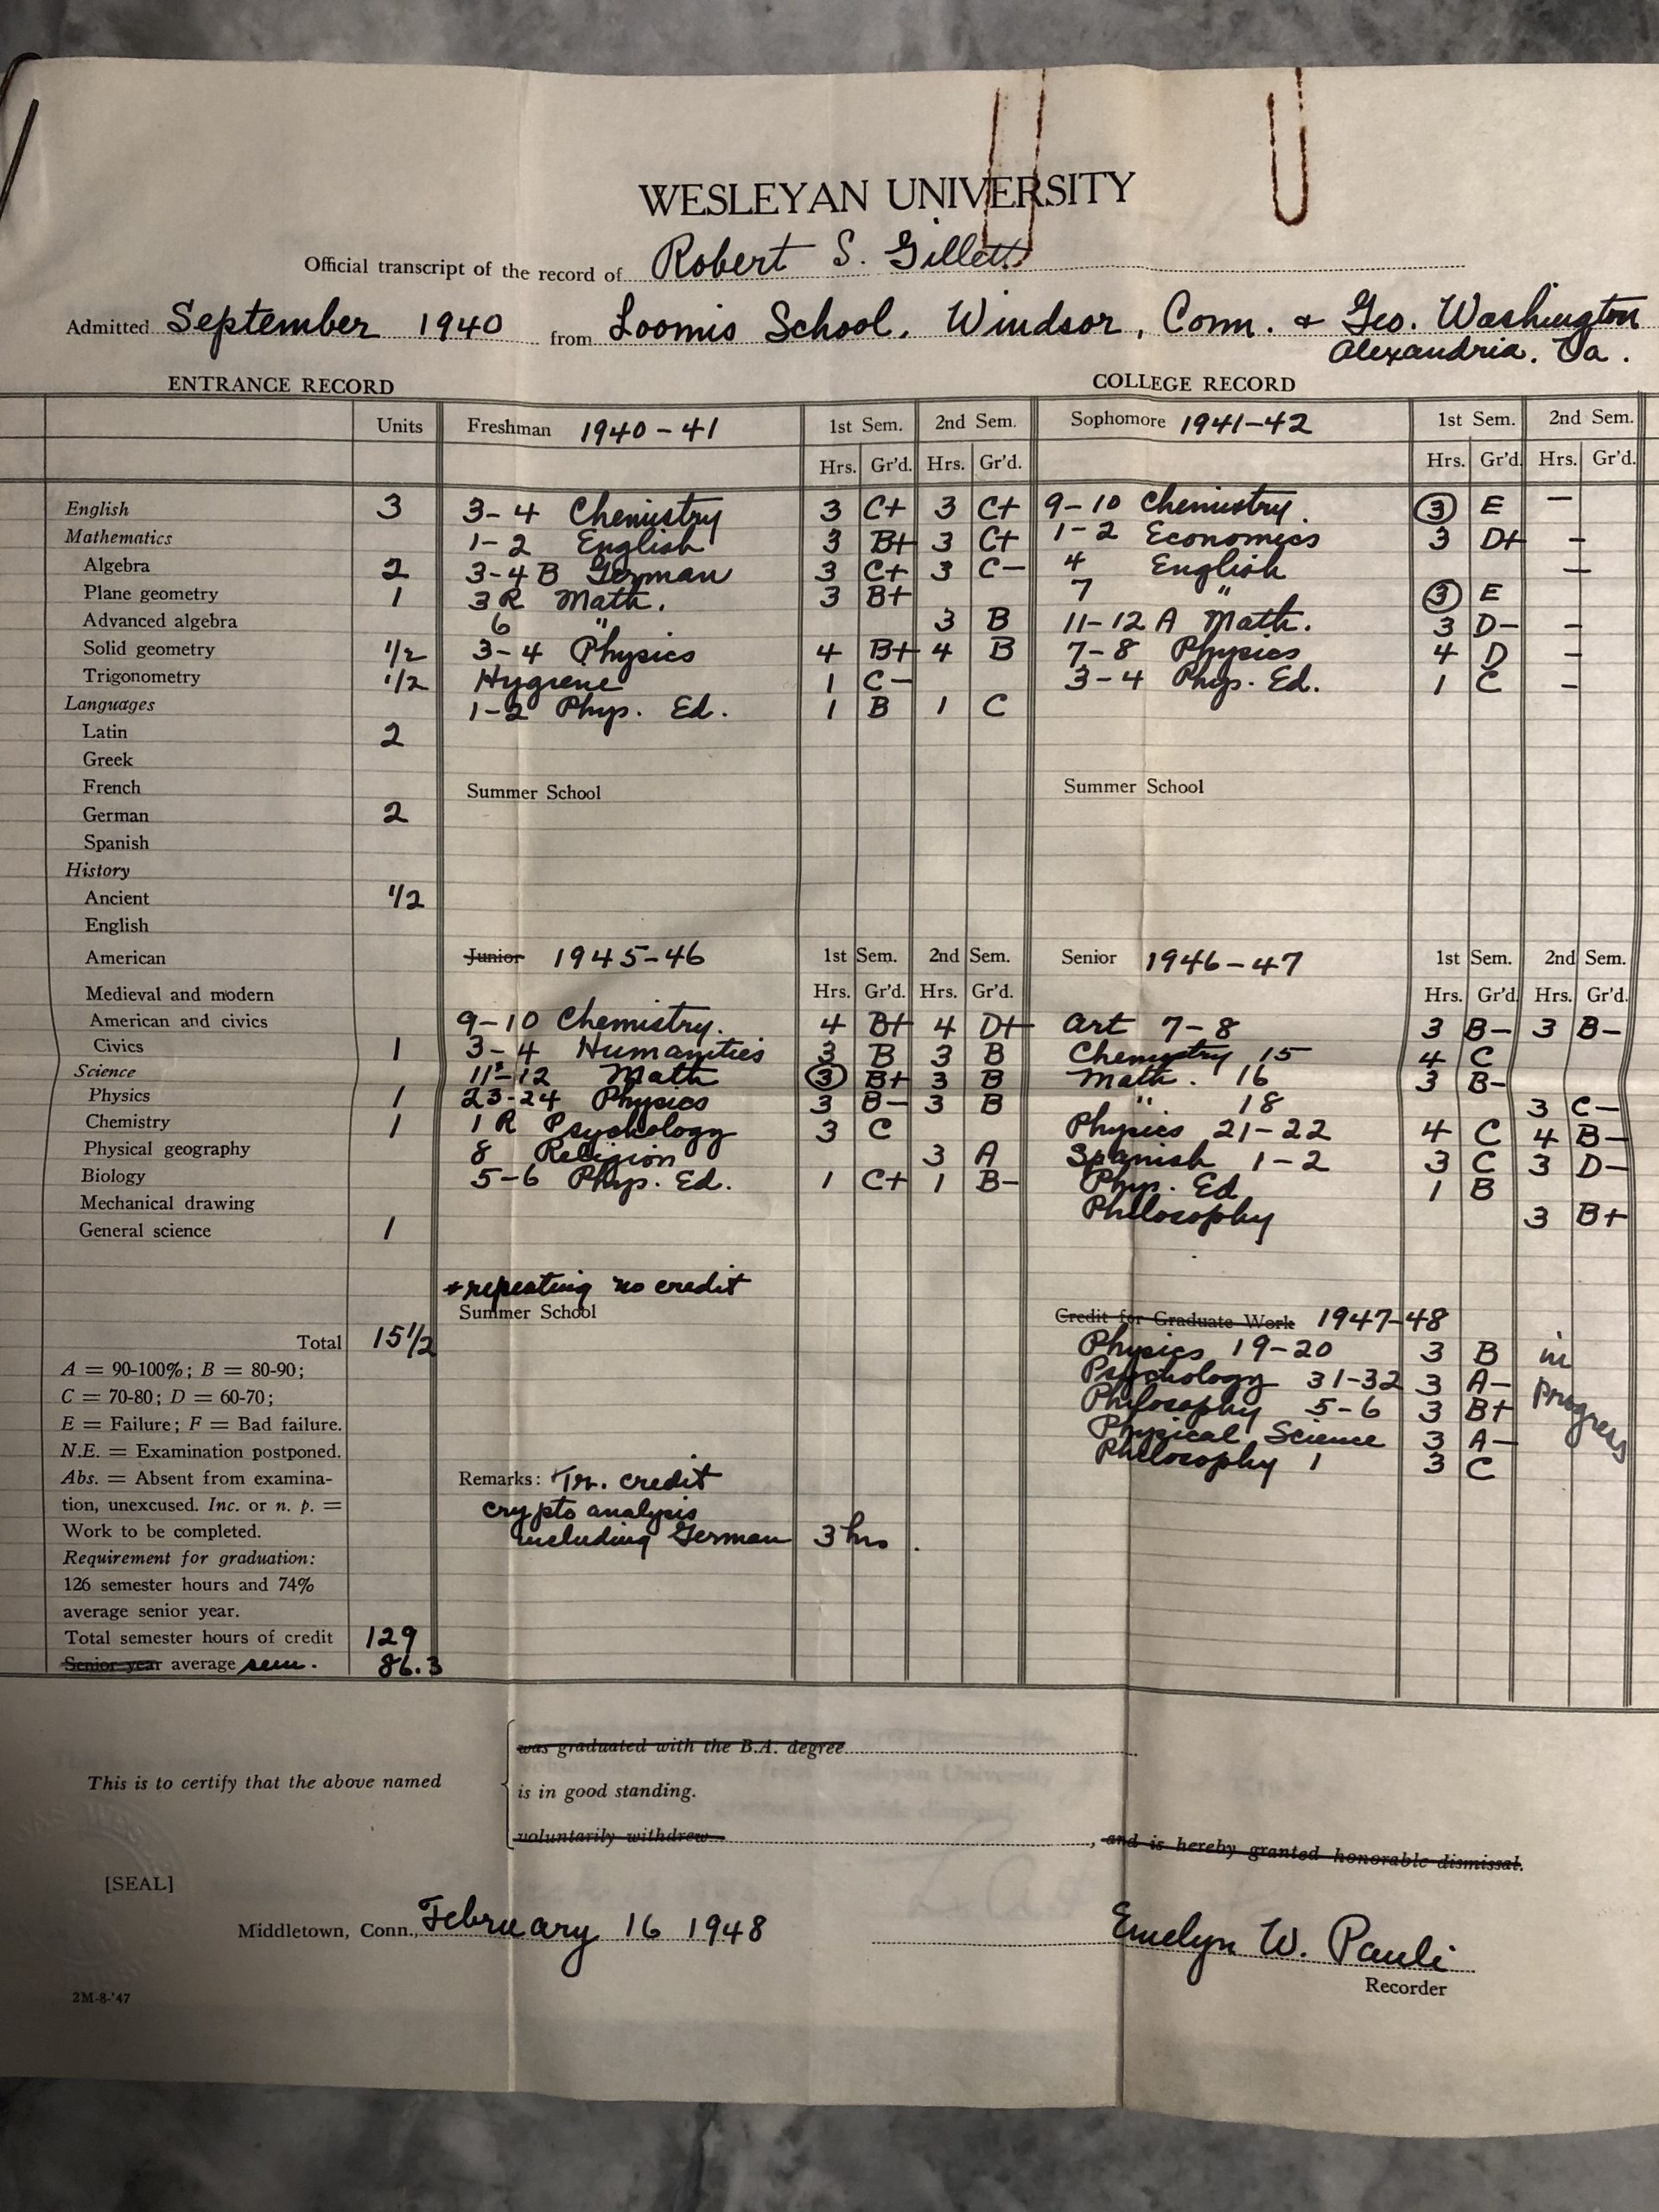 WESLEYAN UNIVERSITY
Official transcript of the record of Robert S. Gillett
Admitted September 1940 from Loomis School, Windsor, Conn. & Geo. Washington
Alexandria, Va.
ENTRANCE RECORD
Units
English 3
Mathematics
Algebra 2
Plane geometry 1
Advanced algebra
Solid geometry 1/2
Trigonometry 1/2
Languages
Latin 2
Greek
French
German 2
Spanish
History
Ancient 1/2
English
American
Medieval and modern
American and civics
Civics 1
Science
Physics 1
Chemistry 1
Physical geography
Biology
Mechanical drawing
General science 1
Total 15 1/2
A = 90-100%; B = 80-90;
C = 70-80; D = 60-70;
E = Failure; F = Bad failure.
N.E. = Examination postponed.
Abs. = Absent from examina-
tion, unexcused. Inc. or n. p. =
Work to be completed.
Requirement for graduation:
126 semester hours and 74%
average senior year.
Total semester hours of credit 129
Senior year average sem. 86.3
COLLEGE RECORD
Freshman 1940-41 1st Sem. 2nd Sem.
Hrs. Gr'd. Hrs. Gr'd.
3-4 Chemistry 3 C+ 3 C+
1-2 English 3 B+ 3 C+
3-4 B German 3 C+ 3 C-
3R Math. 3 B+
6 " 3 B
3-4 Physics 4 B+ 4 B
Hygiene 1 C-
1-2 Phys. Ed. 1 B 1 C
Summer School
Sophomore 1941-42 1st Sem. 2nd Sem.
Hrs. Gr'd. Hrs. Gr'd.
9-10 Chemistry. 3 E -
1-2 Economics 3 D+ -
4 English -
7 " 3 E
11-12 A Math. 3 D- -
7-8 Physics 4 D -
3-4 Phys. Ed. 1 C -
Summer School
Junior 1945-46 1st Sem. 2nd Sem.
Hrs. Gr'd. Hrs. Gr'd.
9-10 Chemistry. 4 B+ 4 D+
3-4 Humanities 3 B 3 B
11-12 Math 3 B+ 3 B
23-24 Physics 3 B- 3 B
1 R Psychology 3 C
8 Religion 3 A
5-6 Phys. Ed. 1 C+ 1 B-
repeating no credit
Summer School
Remarks: Tr. credit
crypto analysis
including German 3 hrs.
Senior 1946-47 1st Sem. 2nd Sem.
Hrs. Gr'd. Hrs. Gr'd.
Art 7-8 3 B- 3 B-
Chemistry 15 4 C
Math. 16 3 B-
" 18 3 C-
Physics 21-22 4 C 4 B-
Spanish 1-2 3 C 3 D-
Phys. Ed 1 B
Philosophy 3 B+
Credit for Graduate Work 1947-48
Physics 19-20 3 B in
Psychology 31-32 3 A- progress
Philosophy 5-6 3 B+
Physical Science 3 A-
Philosophy 1 3 C
This is to certify that the above named
was graduated with the B.A. degree
is in good standing.
voluntarily withdrew , and is hereby granted honorable dismissal.
[SEAL]
Middletown, Conn., February 16 1948
Emelyn W. Pauli
Recorder
2M-8-'47